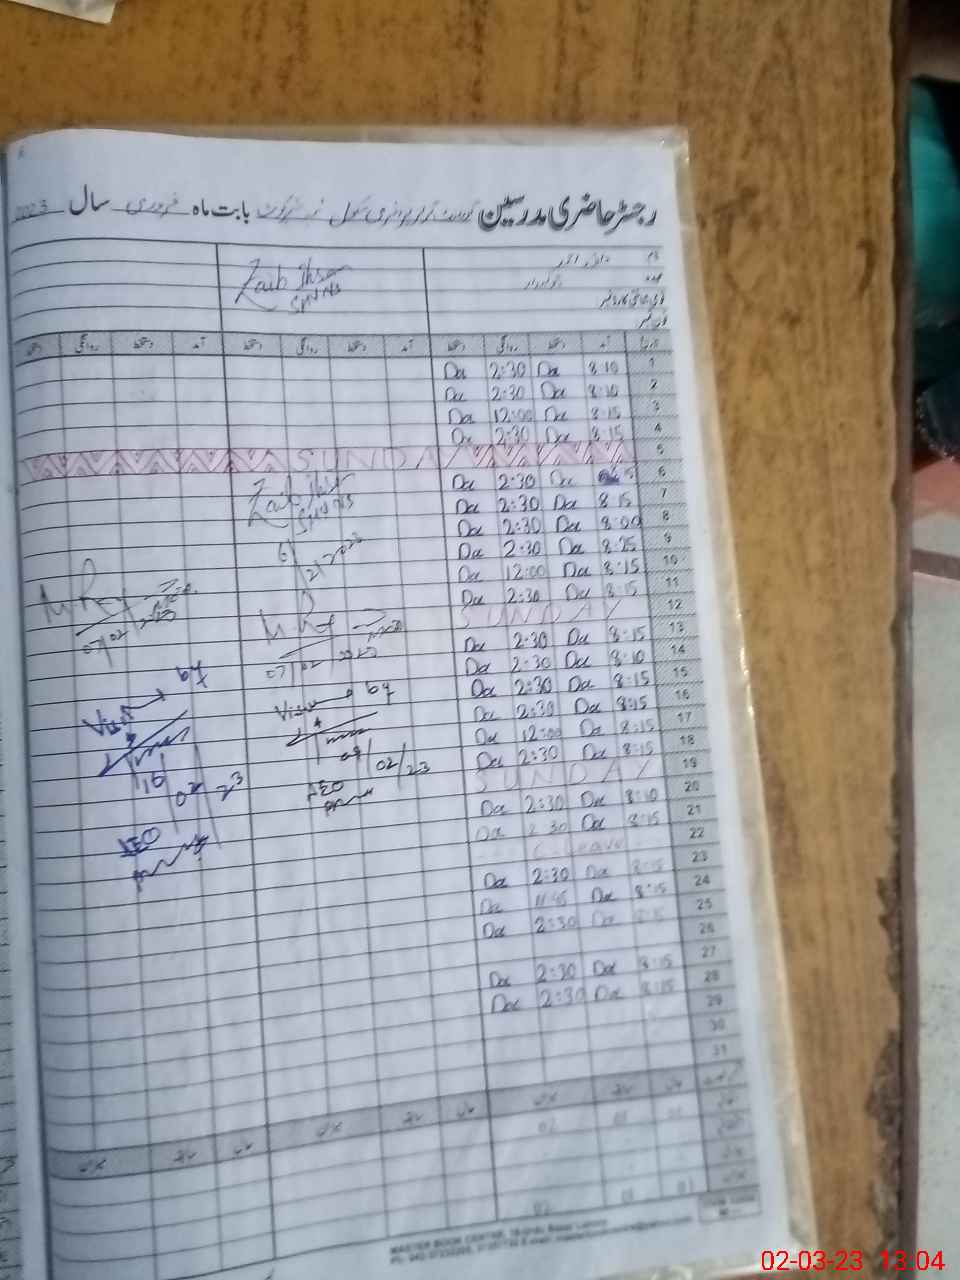 رجسٹر حاضری مدرسین گورنمنٹ گرلز پرائمری سکول بابت ماہ فروری سال 2023
نام
عہدہ چوکیدار
قومی شناختی کارڈ نمبر
فون نمبر
Zaib Ihsan
SMNNS
تاریخ آمد دستخط روانگی دستخط آمد دستخط روانگی دستخط آمد دستخط روانگی دستخط
Da 2:30 Da 8:10 1
Da 2:30 Da 8:10 2
Da 12:00 Da 8:15 3
Da 2:30 Da 8:15 4
SUNDAY 5
Da 2:30 Da 6
Da 2:30 Da 8:15 7
Da 2:30 Da 8:00 8
Da 2:30 Da 8:25 9
Da 12:00 Da 8:15 10
Da 2:30 Da 8:15 11
SUNDAY 12
Da 2:30 Da 8:15 13
Da 2:30 Da 8:10 14
Da 2:30 Da 8:15 15
Da 2:30 Da 8:15 16
Da 12:00 Da 8:15 17
Da 2:30 Da 8:15 18
SUNDAY 19
Da 2:30 Da 8:10 20
Da 2:30 Da 8:15 21
C-Leave 22
Da 2:30 Da 8:15 23
Da 11:45 Da 8:15 24
Da 2:30 Da 25
26
Da 2:30 Da 8:15 27
Da 2:30 Da 8:15 28
29
30
31
Zaib Ihsan
SMNNS
6/2/2023
07/02/2023
07/02/2023
View by
09/02/23
AEO
View by
15/02/23
AEO
02 01 01
02 01 01
MASTER BOOK CENTRE, Urdu Bazar Lahore
02-03-23 13:04